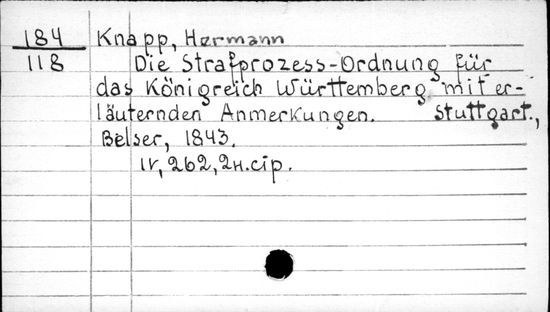 184 Knapp, Hermann
118 Die Strafprozess-Ordnung für
das Königreich Württemberg mit er-
läuternden Anmerkungen. Stuttgart.,
Belser, 1843.
IV, 262, 2н.стр.